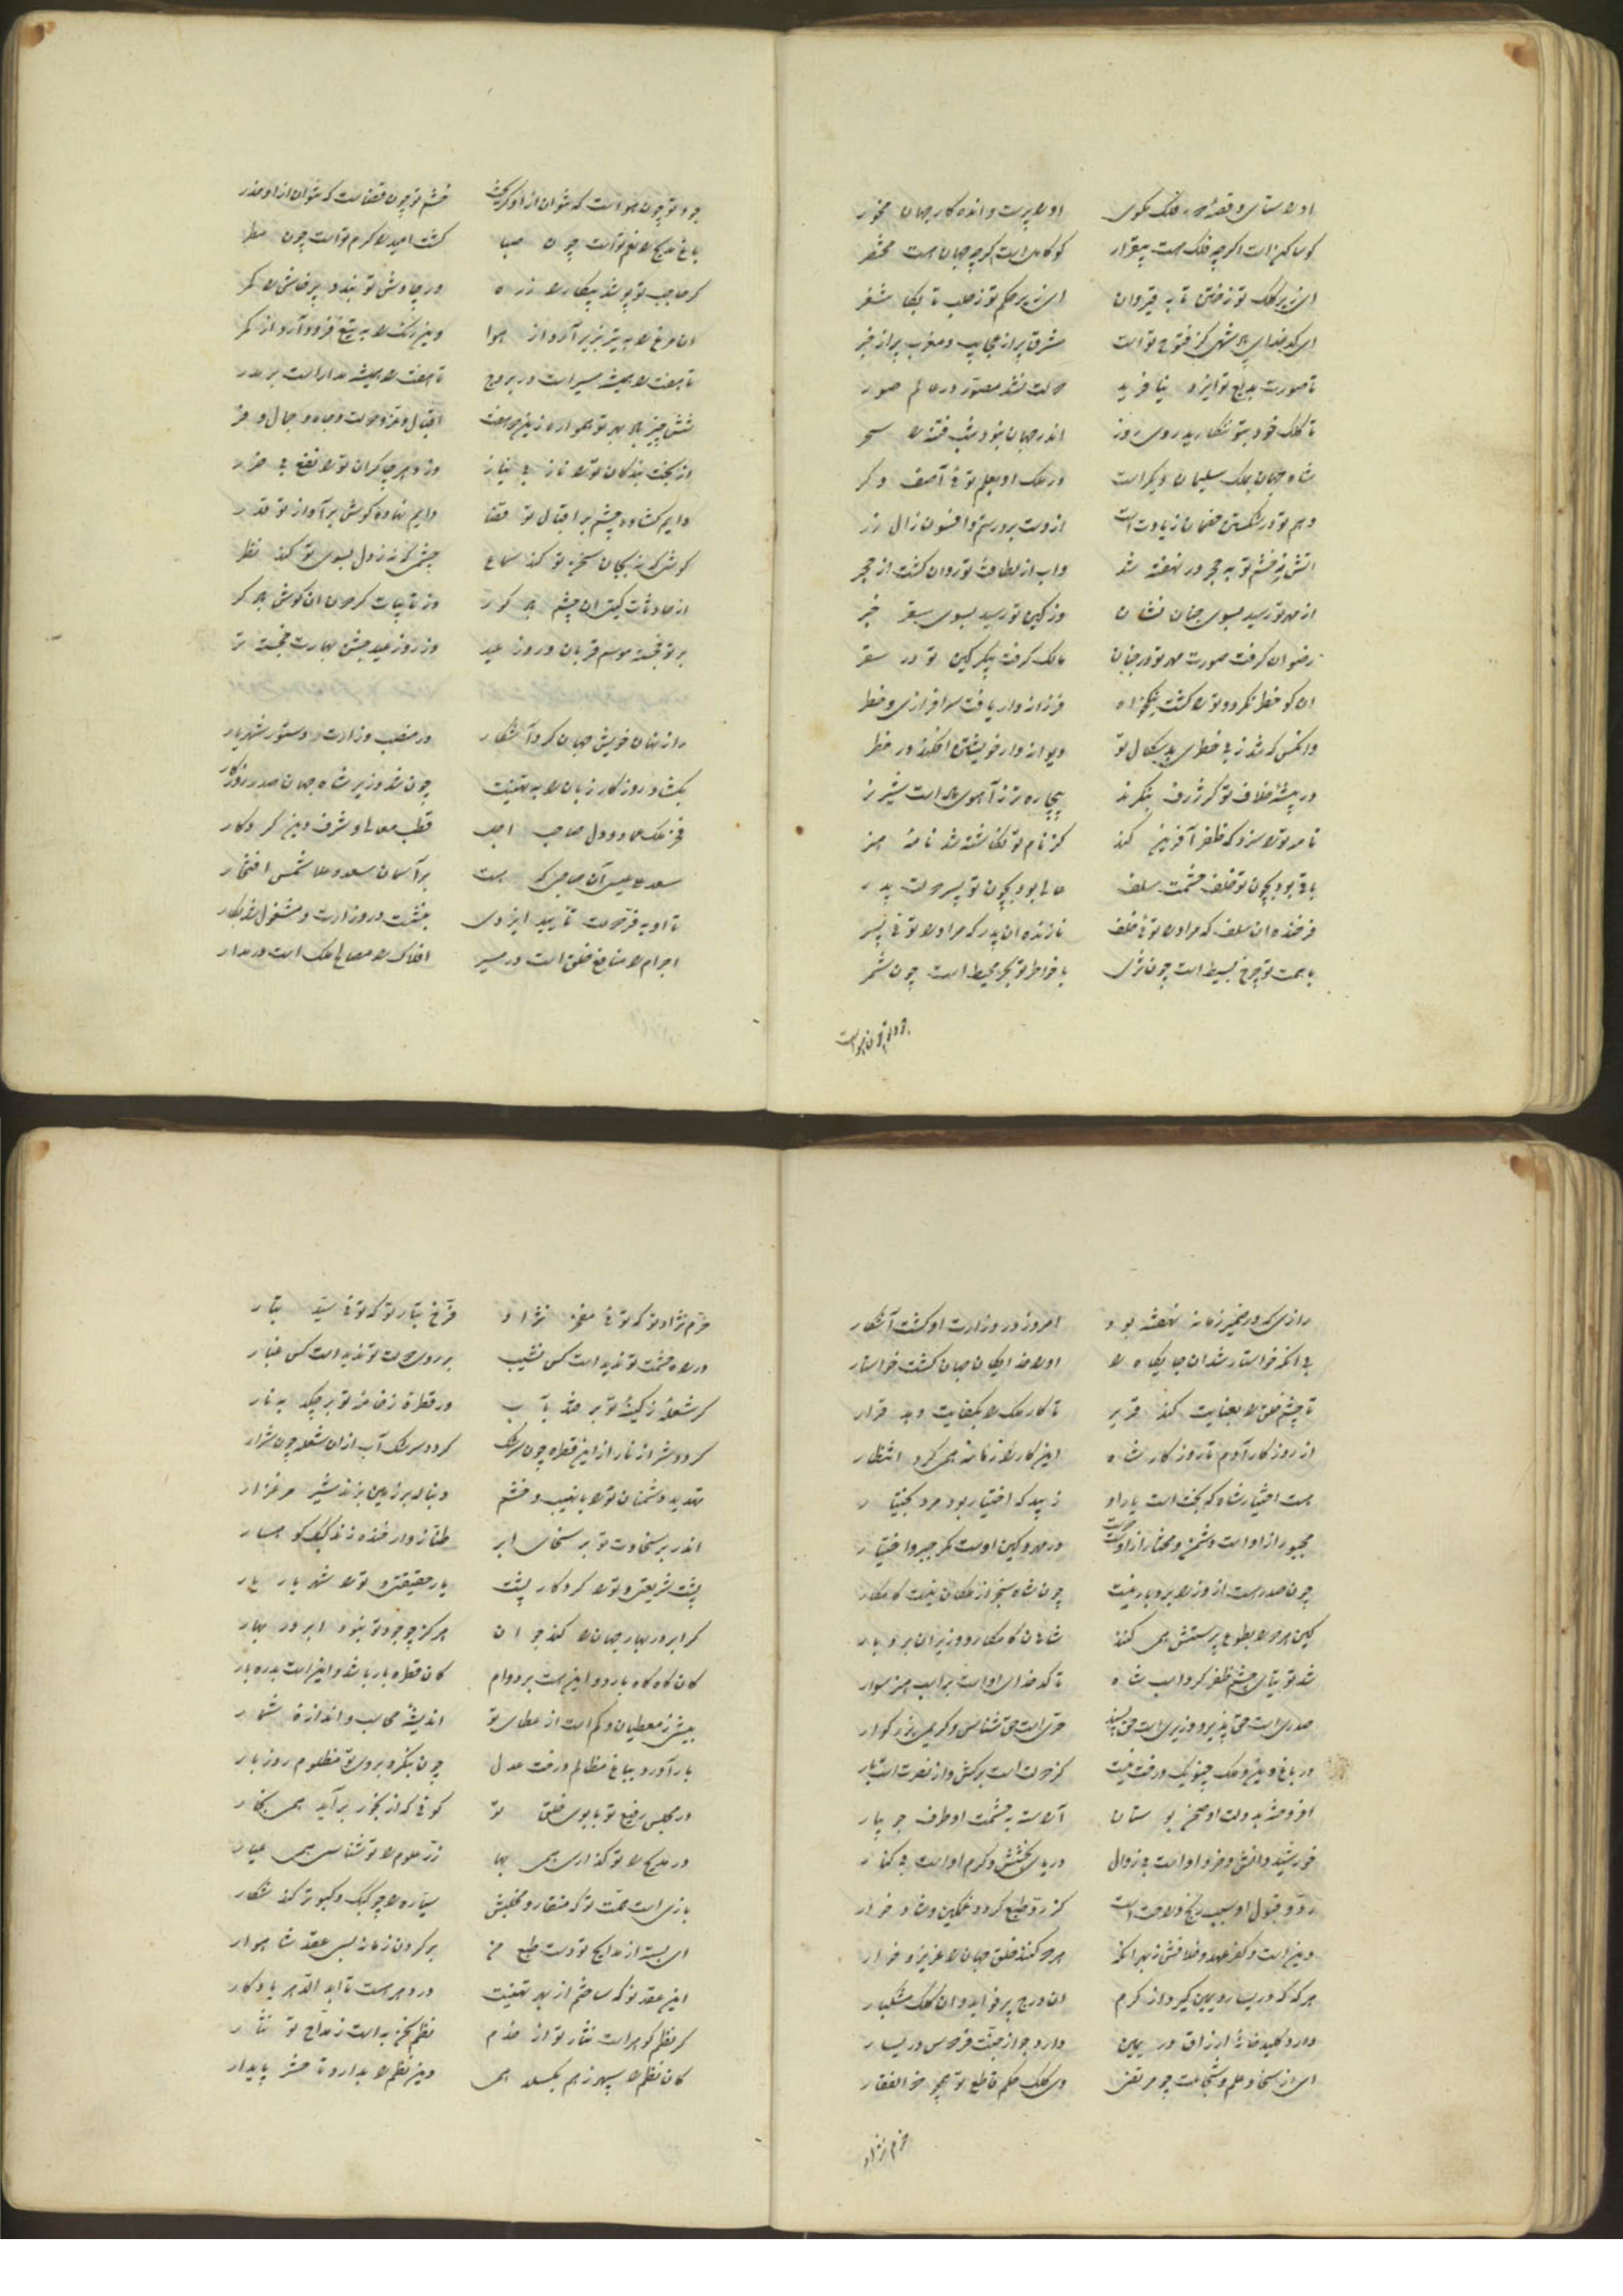 او را ستای و قصهٔ فلک مگوی او را پرست و انده کار جهان مخور
کو ساکن است اگرچه فلک هست بیقرار کو کامل است گرچه جهان هست مختصر
ای زیر کلک تو ز ختن تا به قیروان ای زیر حکم تو ز حلب تا بکاشغر
ای کدخدای شهی کز فتوح تو است مشرق پر از عجایب و مغرب پر از خبر
تا صورت بدیع تو ایزد نیافرید دولت نشد مصور در عالم صور
تا کلک خود بتو ننگارید روی روز اندر جهان نبود شب فتنه را سحر
شاه جهان بملک سلیمان دیگر است در ملک او بعلم توئی آصف دگر
وهم تو در شکستن خصمان زیادت است از دست برد رستم و افسون زال زر
آتش ز خشم تو به حجر در نهفته شد واب از لطافت تو روان گشت از حجر
از مهر تو رسید بسوی جنان نشان وز کین تو رسید بسوی سقر خبر
رضوان گرفت صورت مهر تو در جنان مالک گرفت پیکر کین تو در سقر
ان کو خطر نکرد و ترا گشت نیکخواه فرزانه وار یافت سرافرازی و خطر
وانکس که شد ز بی خطری بدسگال تو دیوانه وار خویشتن افکند در خطر
در بیشهٔ خلاف تو گر ژرف بنگرند بیچاره تر ز آهوی ماده است شیر نر
نامه ترا سزد که ظفر آفرین کند کز نام تو نگاشته شد نامهٔ هنر
باقی بود بچون تو خلف حشمت سلف عالی بود بچون تو پسر دولت پدر
فرخنده ان سلف که مر او را توئی خلف نازنده ان پدر که مر او را توئی پسر
با همت تو چرخ بسیط است چون ثری با خاطر تو بحر محیط است چون شمر
جود تو چون هواست
جود تو چون هواست که نتوان از او گریخت خشم تو چون قضاست که نتوان از او حذر
باغ مدیح را نعم توست چون صبا کشت امید را کرم توست چون مطر
گر حاجب تو پوشد پیکار را زره ور چاوش تو بندد پرخاش را کمر
ان مرغ را به تیر بزیر آرد از هوا وین رنگ را به تیغ فرود آرد از کمر
تا هفت را همیشه مسیر است در بروج تا هفت را همیشه مدار است بر مدر
شش چیز باد بهر تو همواره زین دو هفت اقبال و عز و دولت و جاه و جمال و فر
از بخت بندگان ترا ناز بی نیاز وز دهر چاکران ترا نفع بی ضرر
دایم گشاده چشم بر اقبال تو قضا دایم نهاده گوش بر آواز تو قدر
گوشی که نه بجان سخن تو کند سماع چشمی که نه ز دل بسوی تو کند نظر
از حادثات گیتی ان چشم باد کور وز نایبات گردون ان گوش باد کر
بر تو خجسته موسم قربان و روز عید وز روز عید جشن بهارت خجسته تر
راز نهان خویش جهان کرد آشکار در منصب وزارت دستور شهریار
بگشاد روزگار زبان را به تهنیت چون شد وزیر شاه جهان صدر روزگار
فخر ملک عماد دول صاحب اجل قطب معالی و شرف دین کردگار
سعد علی عیسی آن صاحبی که هست بر آسمان سعد و علا شمس افتخار
تا او به فر دولت و تأیید ایزدی بنشست در وزارت و مشغول شد بکار
اجرام را منافع خلق است در مسیر افلاک را مصالح ملک است در مدار
رازی که در ضمیر زمانه نهفته بود امروز در وزارت او گشت آشکار
بی انکه خواستار شد ان جایگاه را او را خدایگان جهان گشت خواستار
تا چشم خلق را بعنایت کند قریر تا کار ملک را بکفایت دهد قرار
از روزگار آدم تا روزگار شاه این کار را زمانه همی کرد انتظار
هست اختیار شاه که بخت است یار او زیبد که اختیار بود مرد بختیار
مجبور از او است دشمن و مختار از او دوست در مهر و کین اوست مگر جبر و اختیار
چون صدر هست از وزرا بردبار نیست چون شاه سنجر از ملکان نیست کامکار
کین هر دو را بطوع پرستش همی کنند شاهان کامکار و وزیران بردبار
شد توتیای چشم ظفر گرد اسب شاه تا کدخدای او است بر اسب هنر سوار
صدری است حق پذیر و وزیری است حق پسند حری است حق شناس و کریمی بزرگوار
در باغ دین و ملک چنو یک درخت نیست کز دولت است برگش و از نصرت است بار
افروخته بدولت او صحن بوستان آراسته به حشمت او طرف جویبار
خورشید دانش و خرد او است بی زوال دریای بخشش و کرم او است بی کنار
رد و قبول او سبب رنج و راحت است کز رد و طبع گردد غمگین و شادخوار
دین است و کفر عهد و خلافش ز بهر انکه هر دو کنند خلق جهان را عزیز و خوار
هر گه که در یسار و یمین گیرد از کرم ان درج پر فواید و ان کلک مشکبار
دارد کلید خانهٔ ارزاق در یمین دارد جواز جنت فردوس در یسار
ای از سخا و علم و شجاعت چو مرتضی وی کلک حکم قاطع تو همچو ذوالفقار
خرم نژاد
خرم نژاد تو که توئی مفخر نژاد فرخ تبار تو که توئی سید تبار
در راه حشمت تو ندیده است کس نشیب بر روی دولت تو ندیده است کس غبار
گر شعلهٔ ز کینهٔ تو برجهد به آب ور قطرهٔ ز خامهٔ تو برچکد به نار
گردد شرار نار از این قطره چون سرشک گردد سرشک آب از ان شعله چون شرار
تهدید دشمنان ترا با نهیب و خشم دنبال بر زمین بزند شیر مرغزار
اندر بر سخاوت تو بر سخای ابر طناز وار خنده زند کبک کوهسار
پشت شریعتی و ترا کردگار پشت یار حقیقتی و ترا شهریار یار
گر ابر در بهار جهان را کند جوان هرگز چو جود تو نبود ابر در بهار
کان گاه گاه بارد و این هست بر دوام کان قطره بار باشد و این است بدره بار
بیش ز معطیان و کم است از عطای تو اندیشهٔ محاسب و اندازهٔ شمار
بار آورد بباغ مظالم درخت عدل چون بنگرد بروی تو مظلوم روز بار
در مجلس رفیع تو با بوی خلق تو گوئی که از بخور برآید همی بخار
در مدیح را تو گذاری همی بها زر علوم را تو شناسی همی عیار
بازی است همت تو که منقار و مخلبش سیاره را چو کبک و کبوتر کند شکار
ای بسته از مدایح تو دست طبع من بر گردن زمانه بسی عقد شاهوار
این عقد نو که ساختم از بهر تهنیت در دهر هست تا ابد الدهر یادگار
گر نظم گوهر است نثار تو از خدم نظم سخن به است ز مداح تو نثار
کان نظم را سپهر ز هم بگسلد همی وین نظم را بدارد تا حشر پایدار